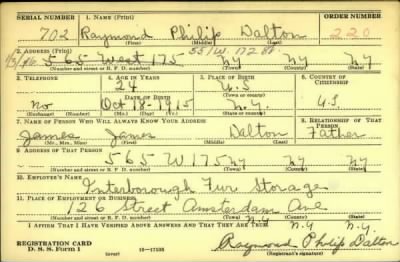 SERIAL NUMBER 1. NAME (Print) ORDER NUMBER
702 Raymond Philip Dalton 220
(First) (Middle) (Last)
551 W. 172 St.
2. ADDRESS (Print)
565 West 175 NY NY
(Number and street or R. F. D. number) (Town) (County) (State)
3. TELEPHONE 4. AGE IN YEARS 5. PLACE OF BIRTH 6. COUNTRY OF CITIZENSHIP
24 U.S
DATE OF BIRTH (Town or county)
No Oct 18-1915 N.Y. U.S.
(Exchange) (Number) (Mo.) (Day) (Yr.) (State or country)
7. NAME OF PERSON WHO WILL ALWAYS KNOW YOUR ADDRESS 8. RELATIONSHIP OF THAT PERSON
James James Dalton Father
(Mr., Mrs., Miss) (First) (Middle) (Last)
9. ADDRESS OF THAT PERSON
565 W 175 NY NY
(Number and street or R. F. D. number) (Town) (County) (State)
10. EMPLOYER'S NAME
Interborough Fur Storage
11. PLACE OF EMPLOYMENT OR BUSINESS
126 Street Amsterdam Ave
(Number and street or R. F. D. number) N.Y. N.Y. N.Y.
I AFFIRM THAT I HAVE VERIFIED ABOVE ANSWERS AND THAT THEY ARE TRUE.
REGISTRATION CARD
D. S. S. FORM 1 16—17105 Raymond Philip Dalton
(over) (Registrant's signature)